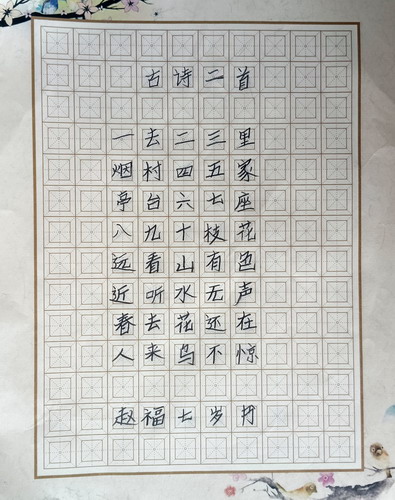 古诗二首
一去二三里
烟村四五家
亭台六七座
八九十枝花
远看山有色
近听水无声
春去花还在
人来鸟不惊
赵福七岁